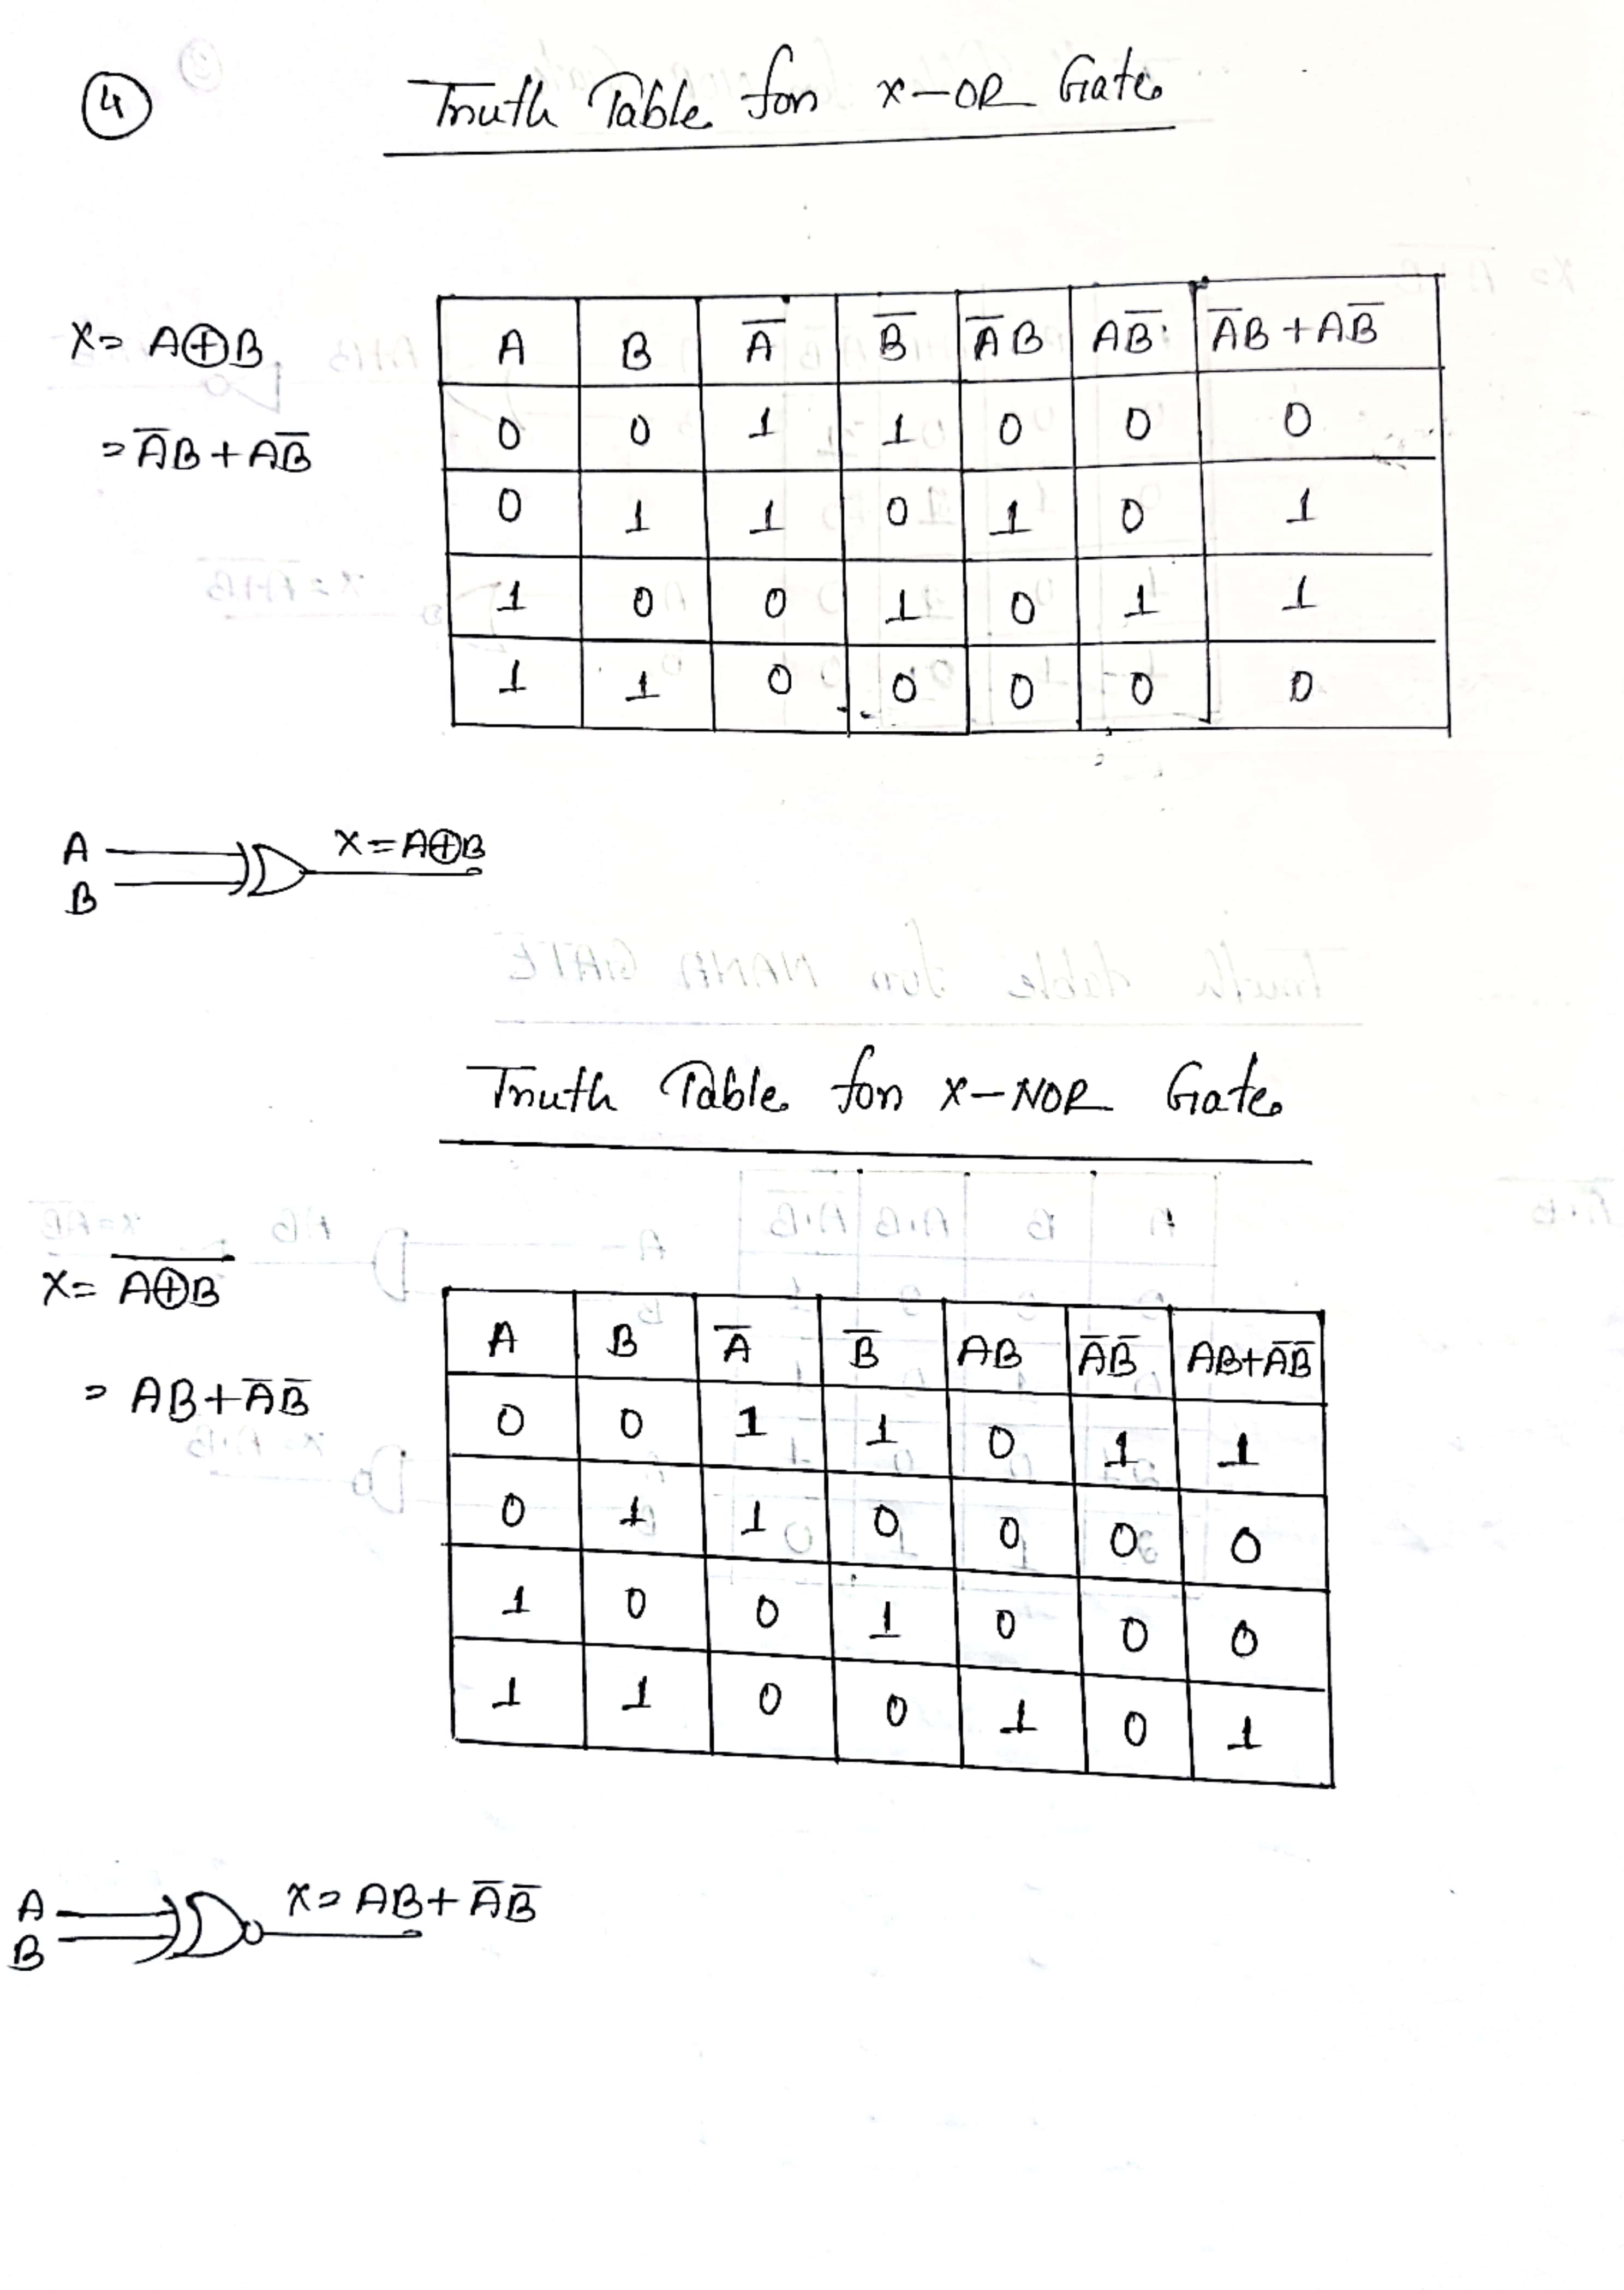 4
Truth Table for X-OR Gate
X = A⊕B
= A̅B + AB̅
A B A̅ B̅ A̅B AB̅ A̅B + AB̅
0 0 1 1 0 0 0
0 1 1 0 1 0 1
1 0 0 1 0 1 1
1 1 0 0 0 0 0
A
B
X = A⊕B
Truth Table for X-NOR Gate
X = \overline{A⊕B}
= AB + A̅B̅
A B A̅ B̅ AB A̅B̅ AB+A̅B̅
0 0 1 1 0 1 1
0 1 1 0 0 0 0
1 0 0 1 0 0 0
1 1 0 0 1 0 1
A
B
X = AB + A̅B̅